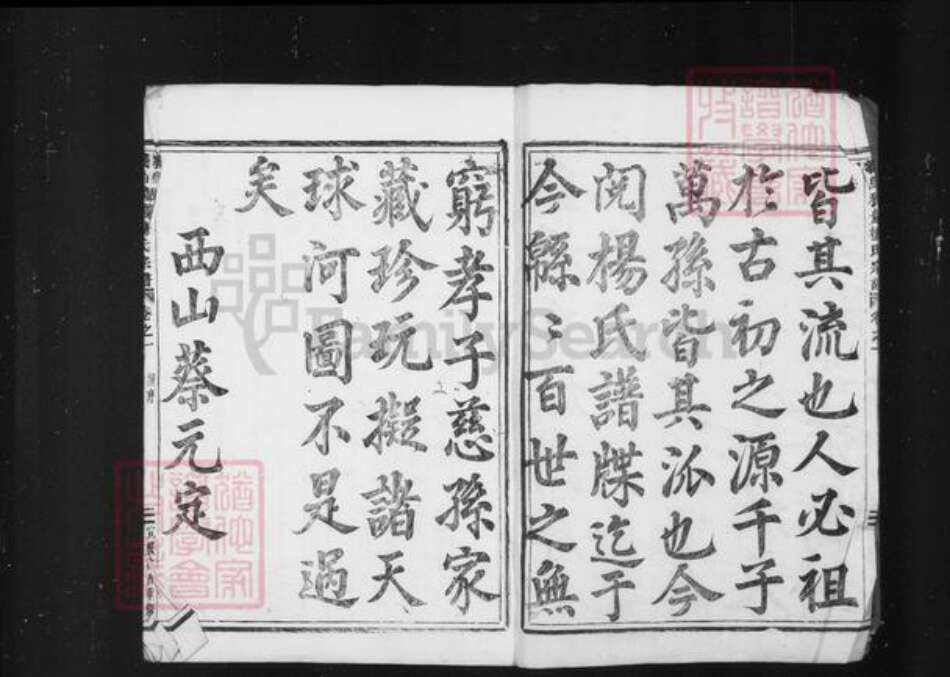 皆其流也人必祖
於古初之源千子
萬孫皆其派也今
閱楊氏譜牒迄于
今緜〻百世之無
窮孝子慈孫家
藏珍玩擬諸天
球河圖不是過
矣
西山蔡元定
FamilySearch